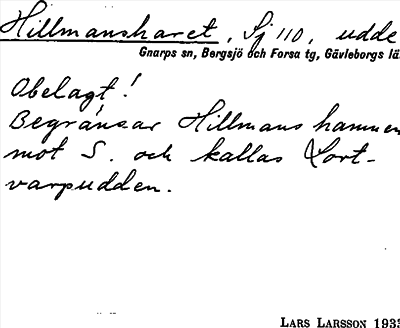 Hillmansharet, Sj 110, udde
Gnarps sn, Bergsjö och Forsa tg, Gävleborgs lä
Obelagt!
Begränsar Hillmanshamnen
mot S. och kallas Lort-
varpudden.
LARS LARSSON 1933